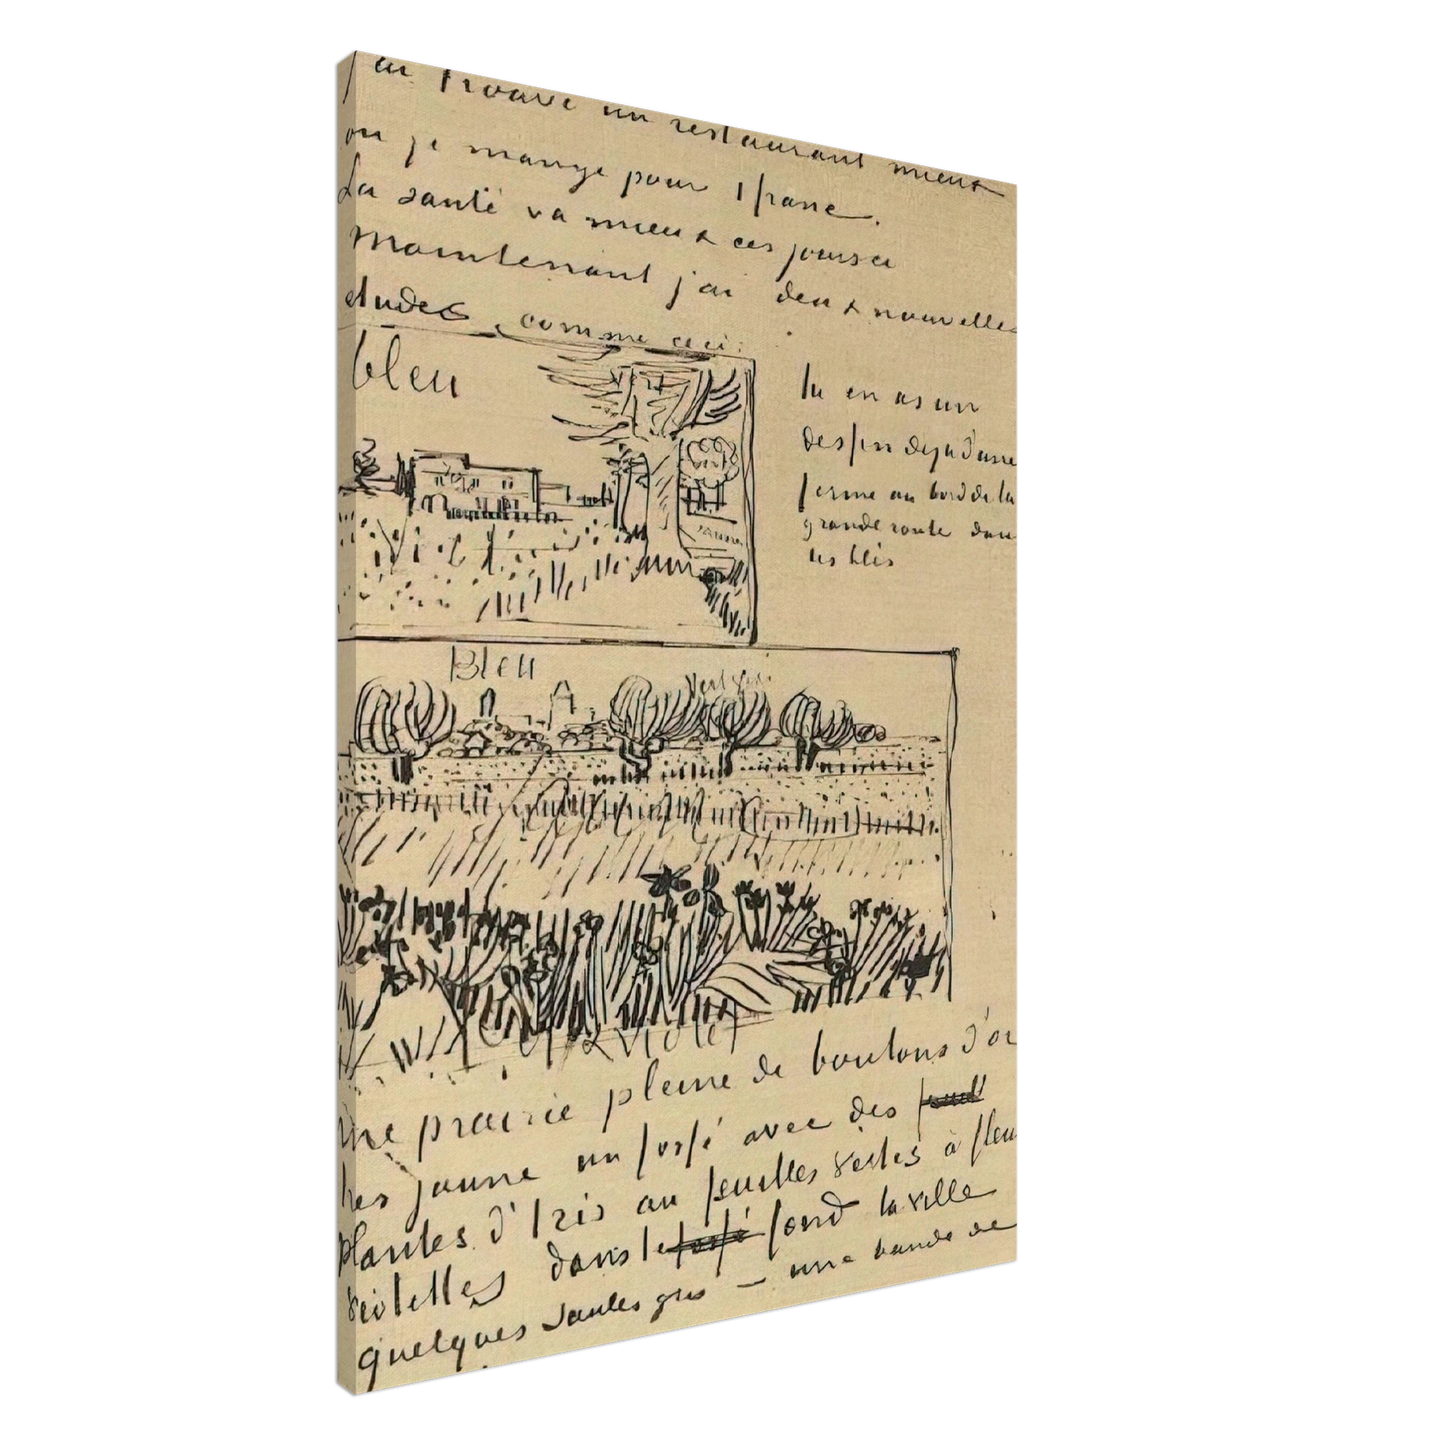 j'ai trouvé un restaurant mieux
ou je mange pour 1 franc.
La santé va mieux ces jours ci
Maintenant j'ai deux nouvelles
etudes comme ceci:
bleu
vert
vert
jaune
tu en as un
dessin deja d'une
ferme au bord de la
grande route dans
les blés
Bleu
vert gris
violet
une prairie pleine de boutons d'or
tres jaune un fossé avec des
plantes d'Iris au feuilles vertes à fleurs
violettes dans le fossé fond la ville
quelques saules gris — une bande de